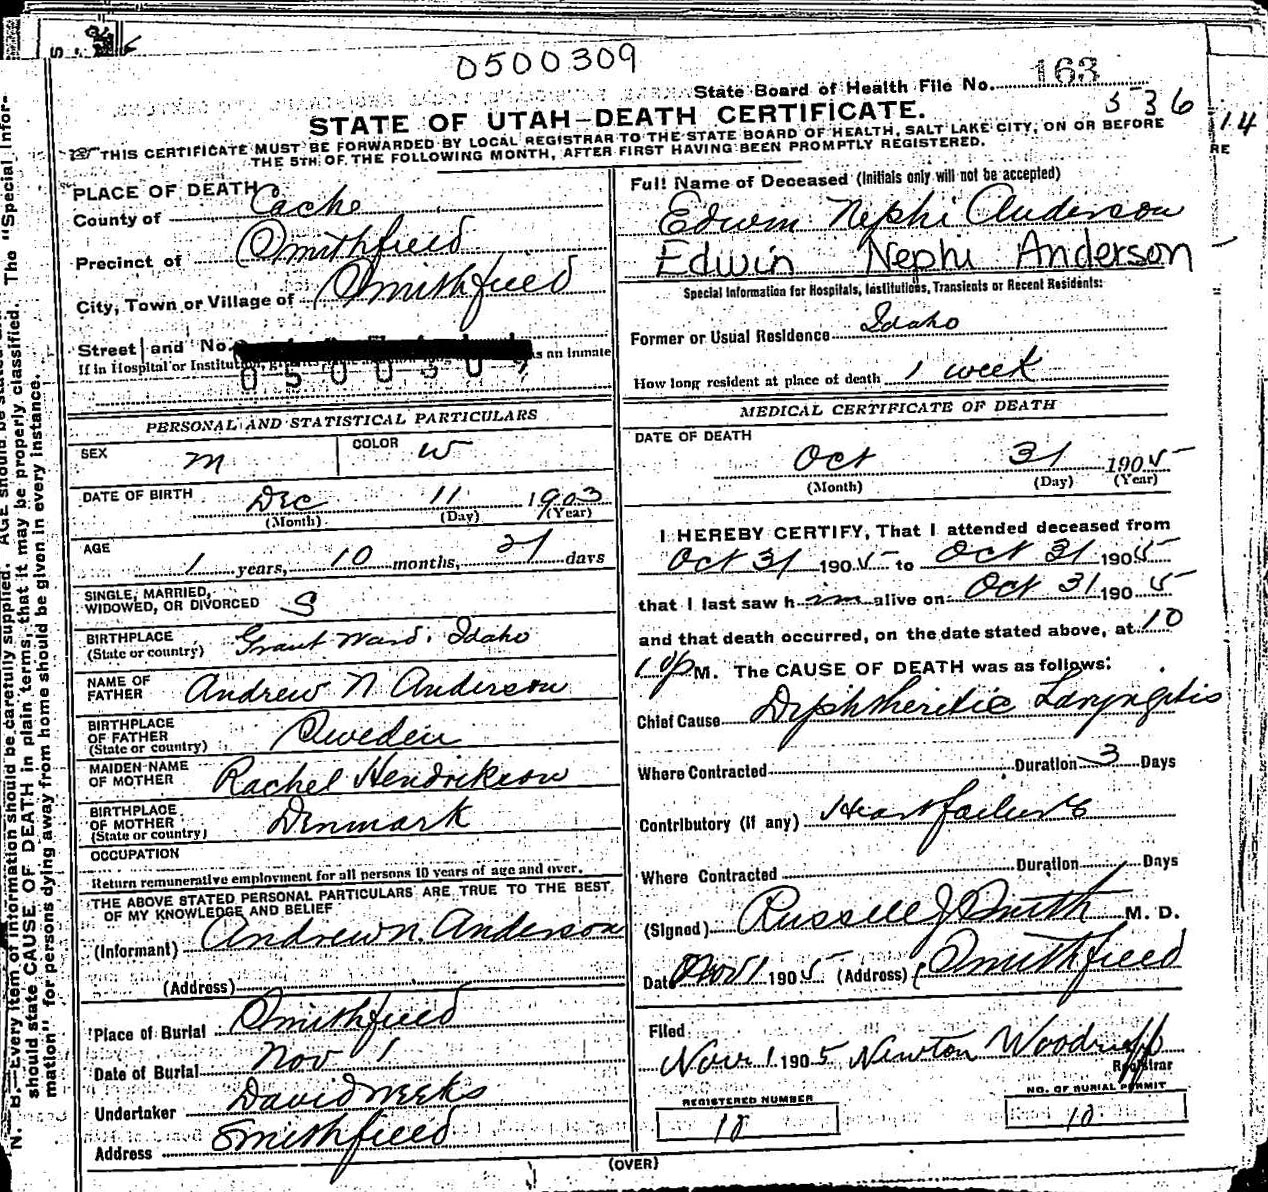 0500309
State Board of Health File No. 163
536
STATE OF UTAH—DEATH CERTIFICATE.
THIS CERTIFICATE MUST BE FORWARDED BY LOCAL REGISTRAR TO THE STATE BOARD OF HEALTH, SALT LAKE CITY, ON OR BEFORE
THE 5TH OF THE FOLLOWING MONTH, AFTER FIRST HAVING BEEN PROMPTLY REGISTERED.
14
RE
PLACE OF DEATH
County of Cache
Precinct of Smithfield
City, Town or Village of Smithfield
Street and No.
If in Hospital or Institution, as an inmate
0500309
PERSONAL AND STATISTICAL PARTICULARS
SEX M COLOR W
DATE OF BIRTH Dec 11 1903
(Month) (Day) (Year)
AGE 1 years, 10 months, 21 days
SINGLE, MARRIED,
WIDOWED, OR DIVORCED S
BIRTHPLACE
(State or country) Grant Ward. Idaho
NAME OF
FATHER Andrew N Anderson
BIRTHPLACE
OF FATHER
(State or country) Sweden
MAIDEN NAME
OF MOTHER Rachel Hendrikson
BIRTHPLACE
OF MOTHER
(State or country) Denmark
OCCUPATION
Return remunerative employment for all persons 10 years of age and over.
THE ABOVE STATED PERSONAL PARTICULARS ARE TRUE TO THE BEST
OF MY KNOWLEDGE AND BELIEF
(Informant) Andrew N. Anderson
(Address)
Place of Burial Smithfield
Date of Burial Nov 1
Undertaker David Weeks
Address Smithfield
Full Name of Deceased (Initials only will not be accepted)
Edwin Nephi Anderson
Edwin Nephi Anderson
Special Information for Hospitals, Institutions, Transients or Recent Residents:
Former or Usual Residence Idaho
How long resident at place of death 1 week
MEDICAL CERTIFICATE OF DEATH
DATE OF DEATH
Oct 31 1905
(Month) (Day) (Year)
I HEREBY CERTIFY, That I attended deceased from
Oct 31 1905 to Oct 31 1905
that I last saw him alive on Oct 31 1905
and that death occurred, on the date stated above, at 10
10 P M. The CAUSE OF DEATH was as follows:
Chief Cause Diphtheritic Laryngitis
Where Contracted Duration 3 Days
Contributory (if any) Heart failure
Where Contracted Duration Days
(Signed) Russell J Smith M. D.
Date Nov 1 1905 (Address) Smithfield
Filed
Nov 1 1905 Newton Woodruff
Registrar
REGISTERED NUMBER
18
NO. OF BURIAL PERMIT
10
(OVER)
N. B.—Every item of information should be carefully supplied. AGE should be state
should state CAUSE OF DEATH in plain terms, that it may be properly classified. The "Special Infor-
mation" for persons dying away from home should be given in every instance.